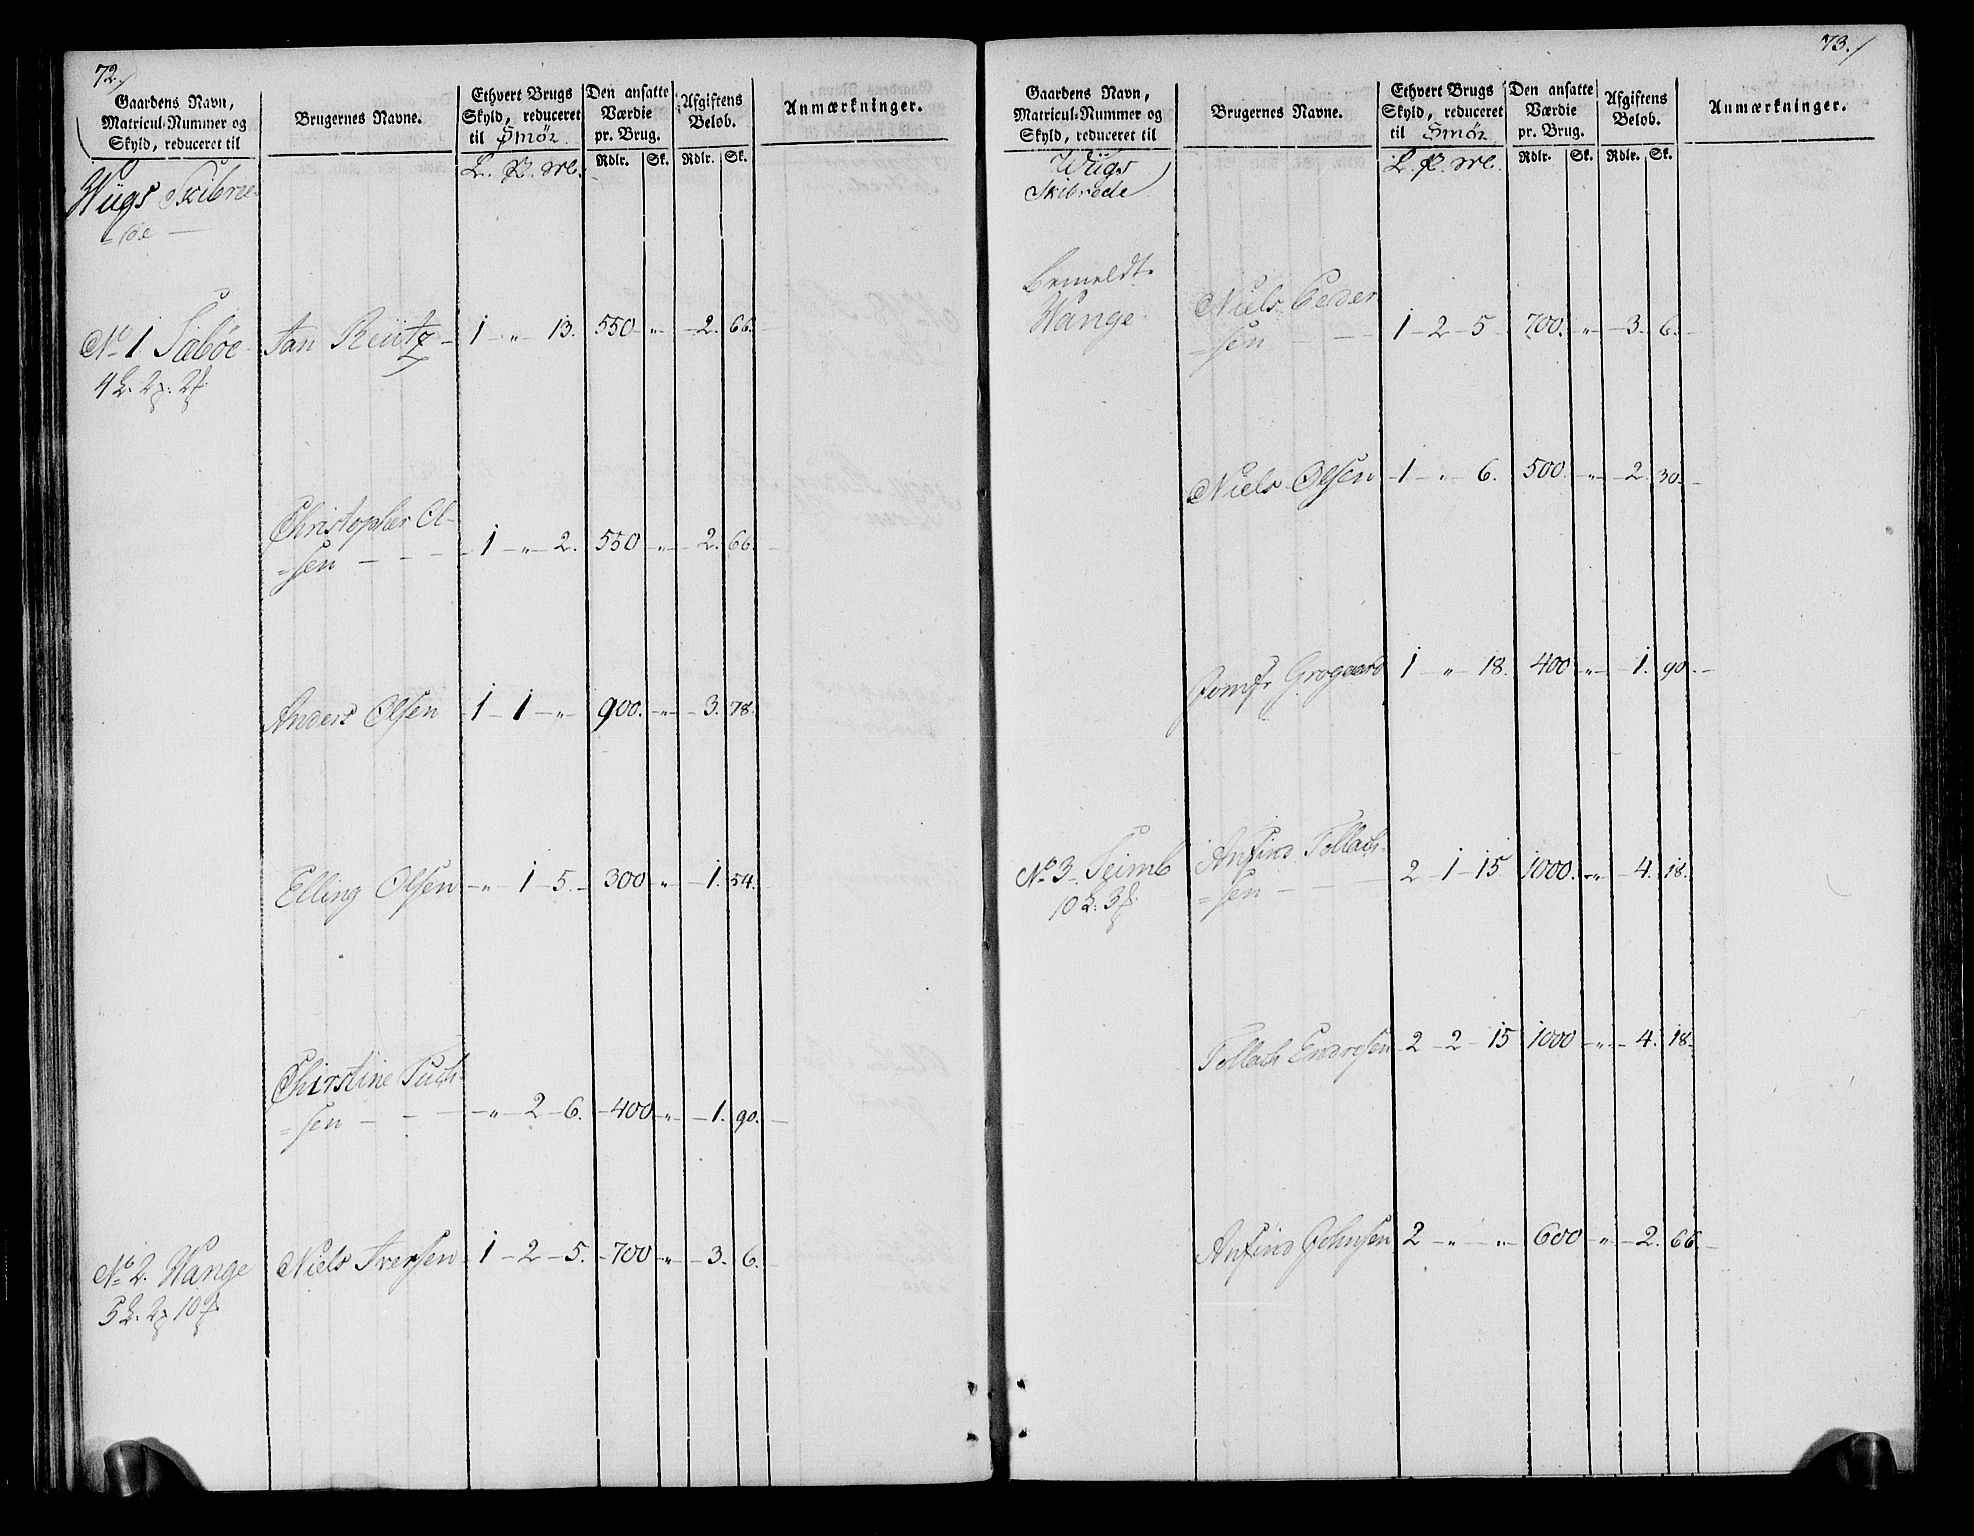 72./
Gaardens Navn, Matricul-Nummer og Skyld, reduceret til
Brugernes Navne.
Ethvert Brugs Skyld, reduceret til Smör
Den ansatte Værdie pr. Brug.
Afgiftens Beløb.
Anmærkninger.
L. P. Ml. Rdlr. Sk. Rdlr. Sk.
Wiigs Skibree-
=de
No 1. Sæbøe Jan Reütz 1 - „ - 13. 550 „ 2. 66.
4 L. 2 p. 2
Christopher Ol-
=sen 1 - „ - 2. 550 „ 2. 66.
Anders Olsen 1 - 1 - „ 900. „ 3. 78.
Elling Olsen „ 1 - 5. 300 „ 1. 54.
Chirstine
=sen „ - 2 - 6. 400 „ 1. 90.
No 2. Wange Niels Iversen 1 - 2 - 5. 700 „ 3. 6.
5 L. 2 p 10
73./
Gaardens Navn, Matricul-Nummer og Skyld, reduceret til
Brugernes Navne.
Ethvert Brugs Skyld, reduceret til Smör
Den ansatte Værdie pr. Brug.
Afgiftens Beløb.
Anmærkninger.
L. P. Ml. Rdlr. Sk. Rdlr. Sk.
Wiigs
Skibrede
bemeldt.
Wange Niels Peder
=sen 1 - 2 - 5 700. „ 3. 6.
Niels Olsen 1 - „ - 6. 500. „ 2. 30.
Jomfr Grogaard 1 „ - 18. 400 „ 1. 90
No 3. Seimb Anfind Tollach-
10 L. 3 =sen 2 - 1 - 15 1000. „ 4. 18.
Tollach Endresen 2 - 2 - 15 1000 „ 4. 18.
Anfind Johnsen 2 - „ - „ 600 „ 2. 66.